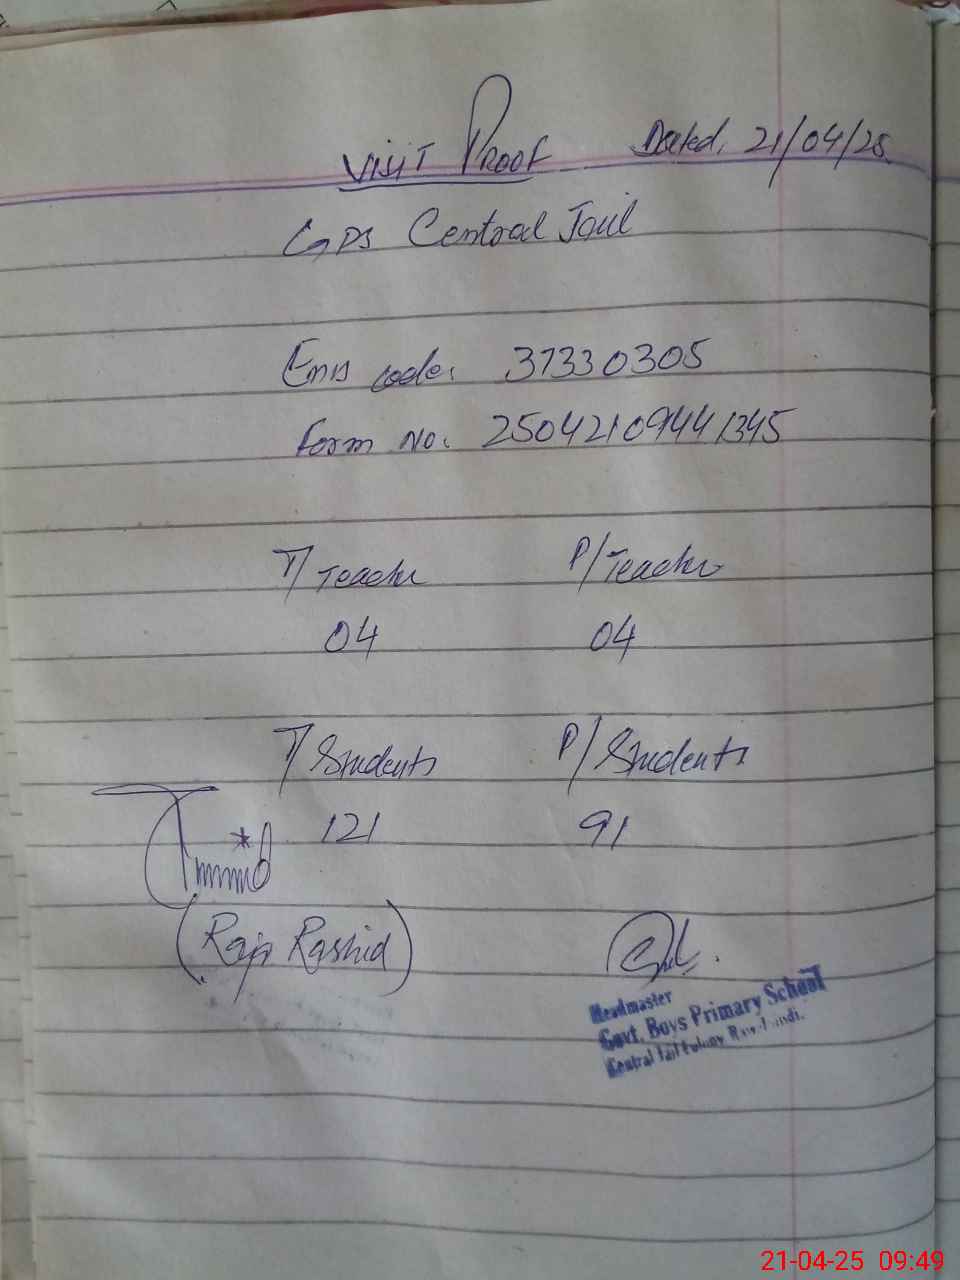 Visit Proof Dated, 21/04/25
GPS Central Jail
Emis code: 37330305
Form No: 25042109441345
T/Teacher P/Teacher
04 04
T/Students P/Students
121 91
(Raja Rashid)
Headmaster
Govt. Boys Primary School
Central Jail Colony Rawalpindi.
21-04-25 09:49